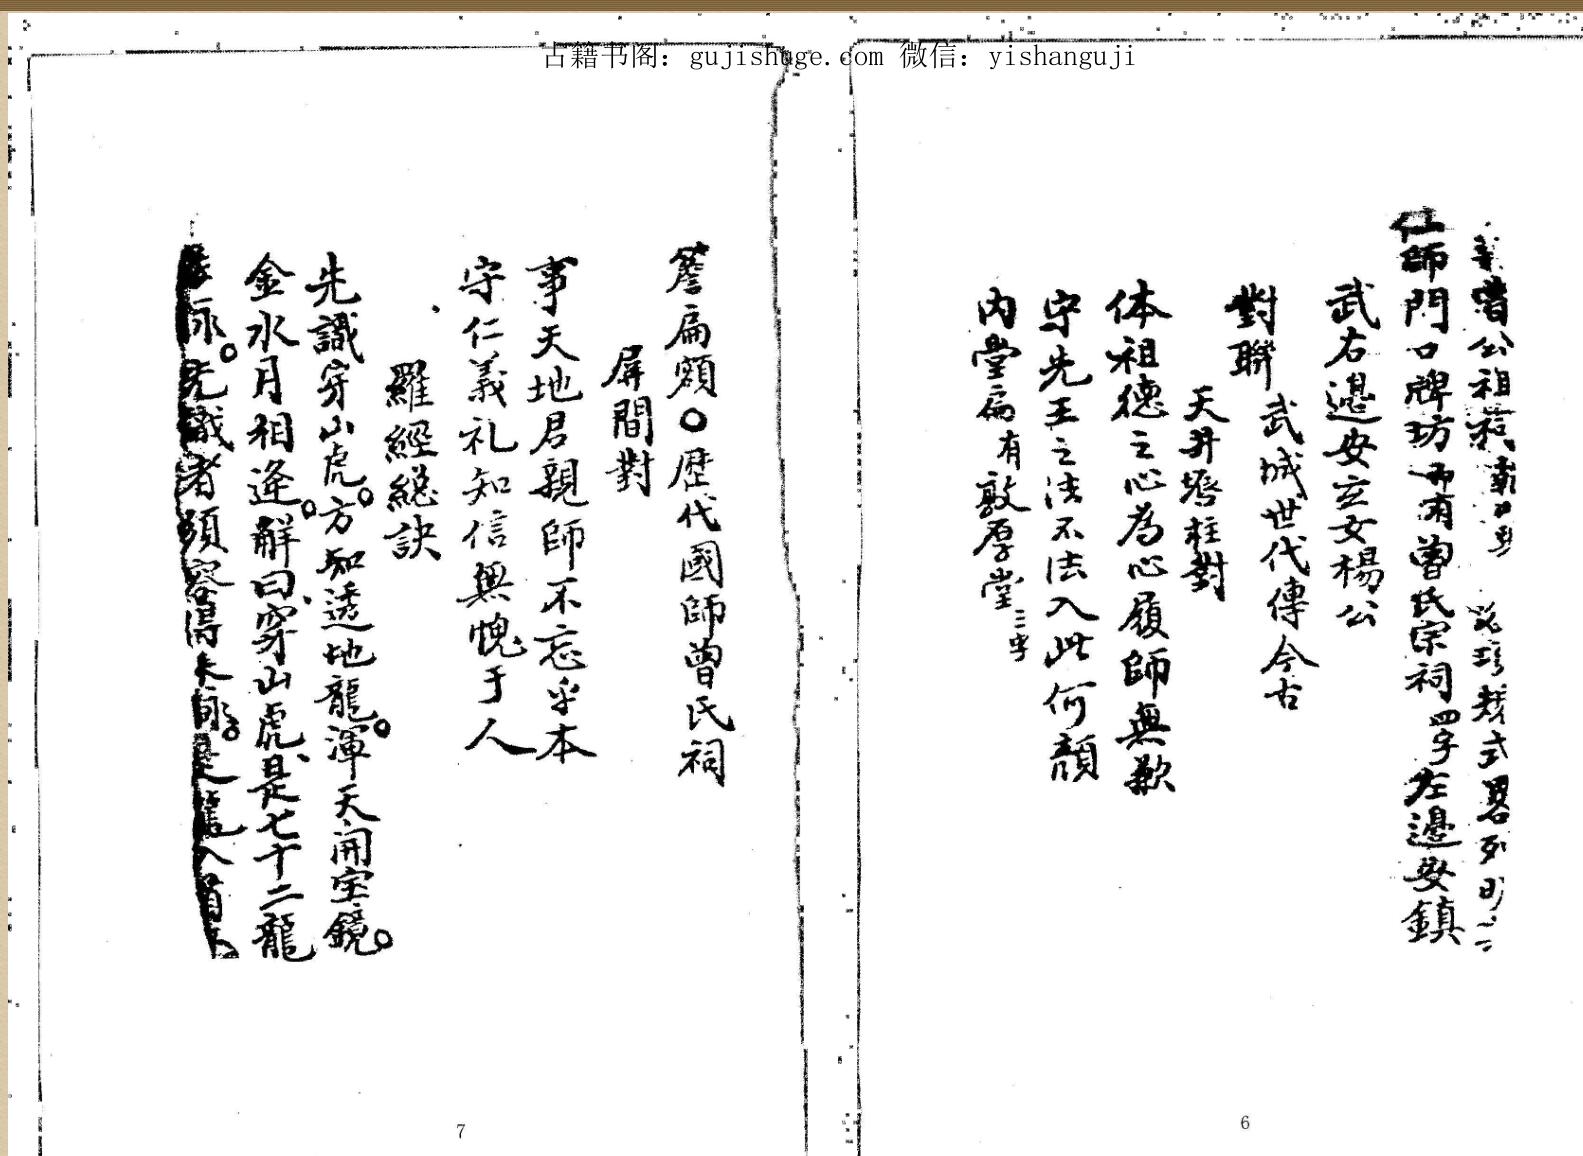 古籍书阁：gujishuge.com 微信：yishanguji
曾公祖 式畧列
師門口牌坊 有曾氏宗祠四字左邊安鎮
武右邊安立女楊公
對聯
武城世代傳今古
天井 柱對
体祖德之心為心履師無歉
守先王之法不法入此何顔
内堂扁有敦厚堂三字
6
簷扁額〇歴代國師曾氏祠
屏間對
事天地君親師不忘乎本
守仁義礼知信無愧于人
羅經總訣
先識穿山虎。方知透地龍。渾天開宝鏡。
金水月相逄。解曰穿山虎是七十二龍
先識者須容得 龍入首
7